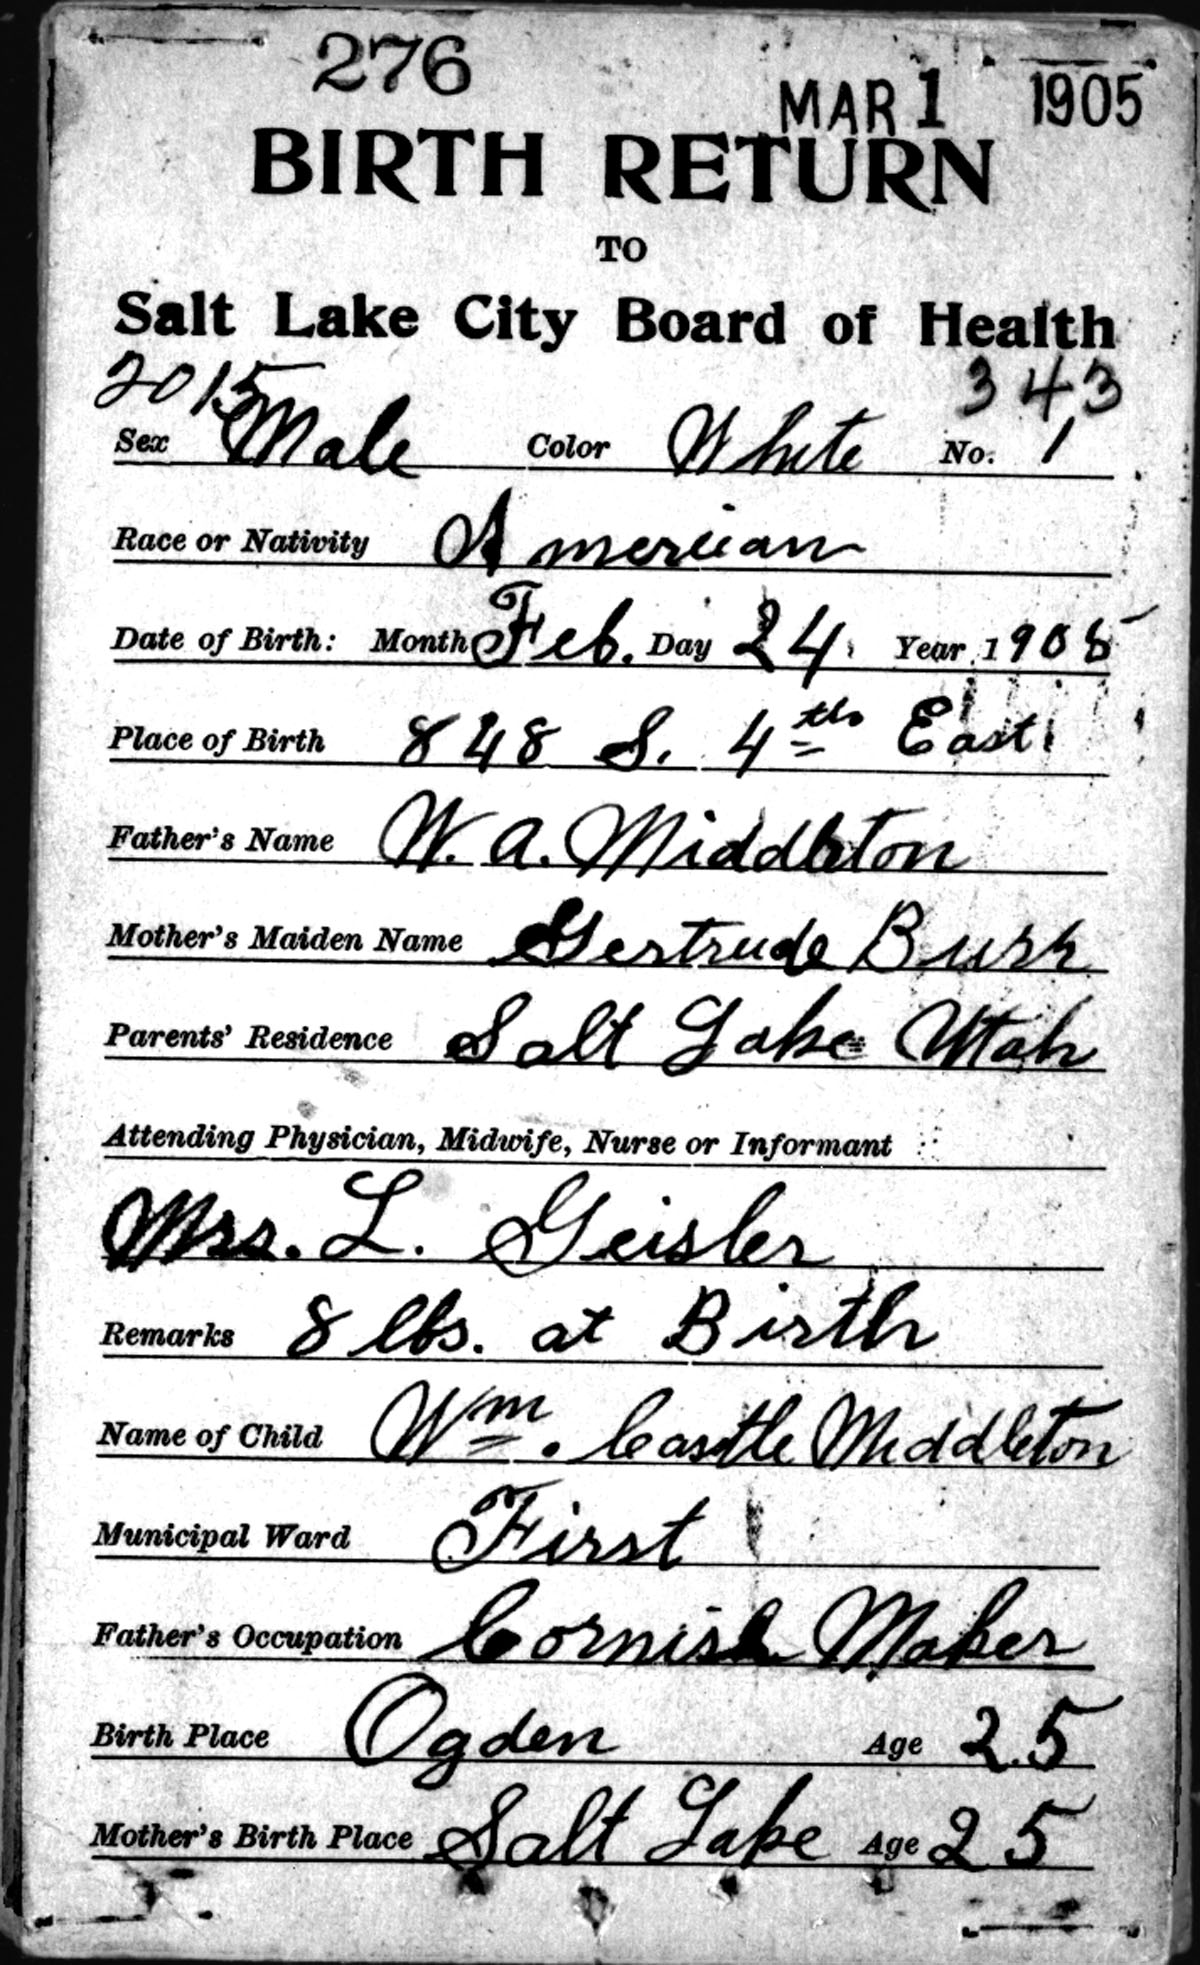 276
MAR 1 1905
BIRTH RETURN
TO
Salt Lake City Board of Health
2015 343
Sex Male Color White No. 1
Race or Nativity American
Date of Birth: Month Feb. Day 24 Year 1905
Place of Birth 848 S. 4th East
Father's Name W. A. Middleton
Mother's Maiden Name Gertrude Bush
Parents' Residence Salt Lake Utah
Attending Physician, Midwife, Nurse or Informant
Mrs. L. Geisler
Remarks 8 lbs. at Birth
Name of Child Wm. Castle Middleton
Municipal Ward First
Father's Occupation Cornish Maker
Birth Place Ogden Age 25
Mother's Birth Place Salt Lake Age 25